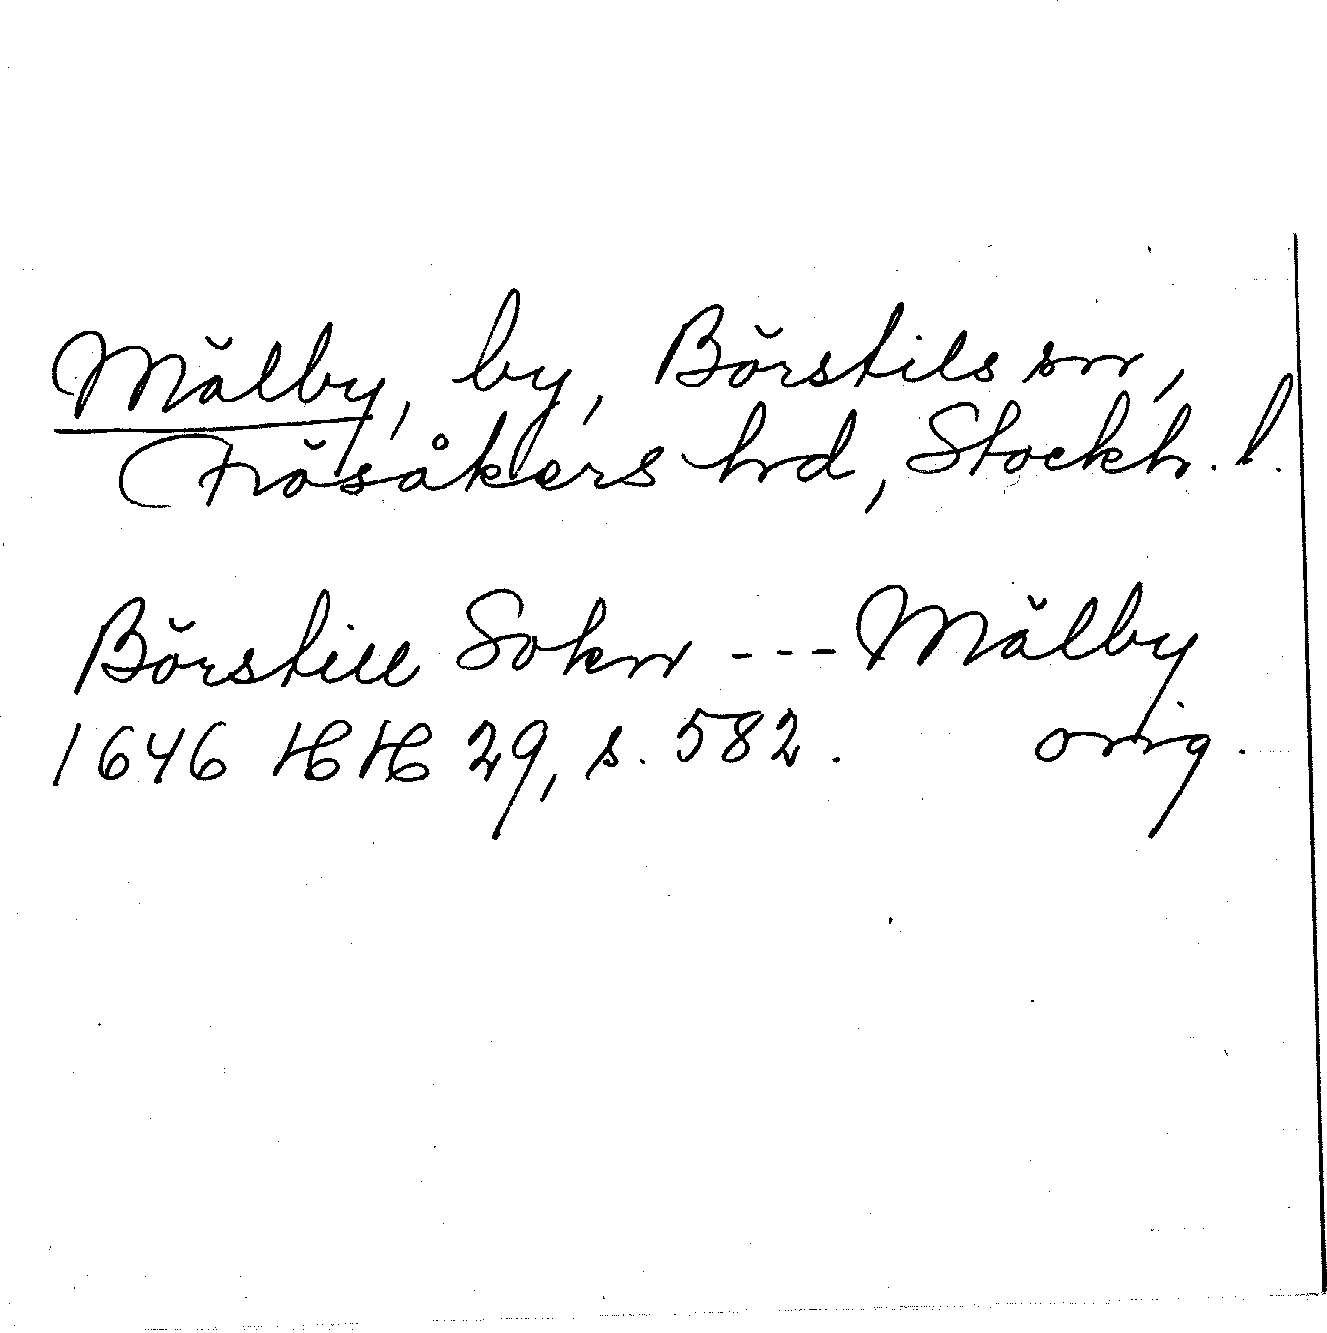 Mälby, by, Börstils sn,
Frösåkers hrd, Stockh. l.
Börstill Sokn --- Mälby
1646 HH 29, s. 582. orig.